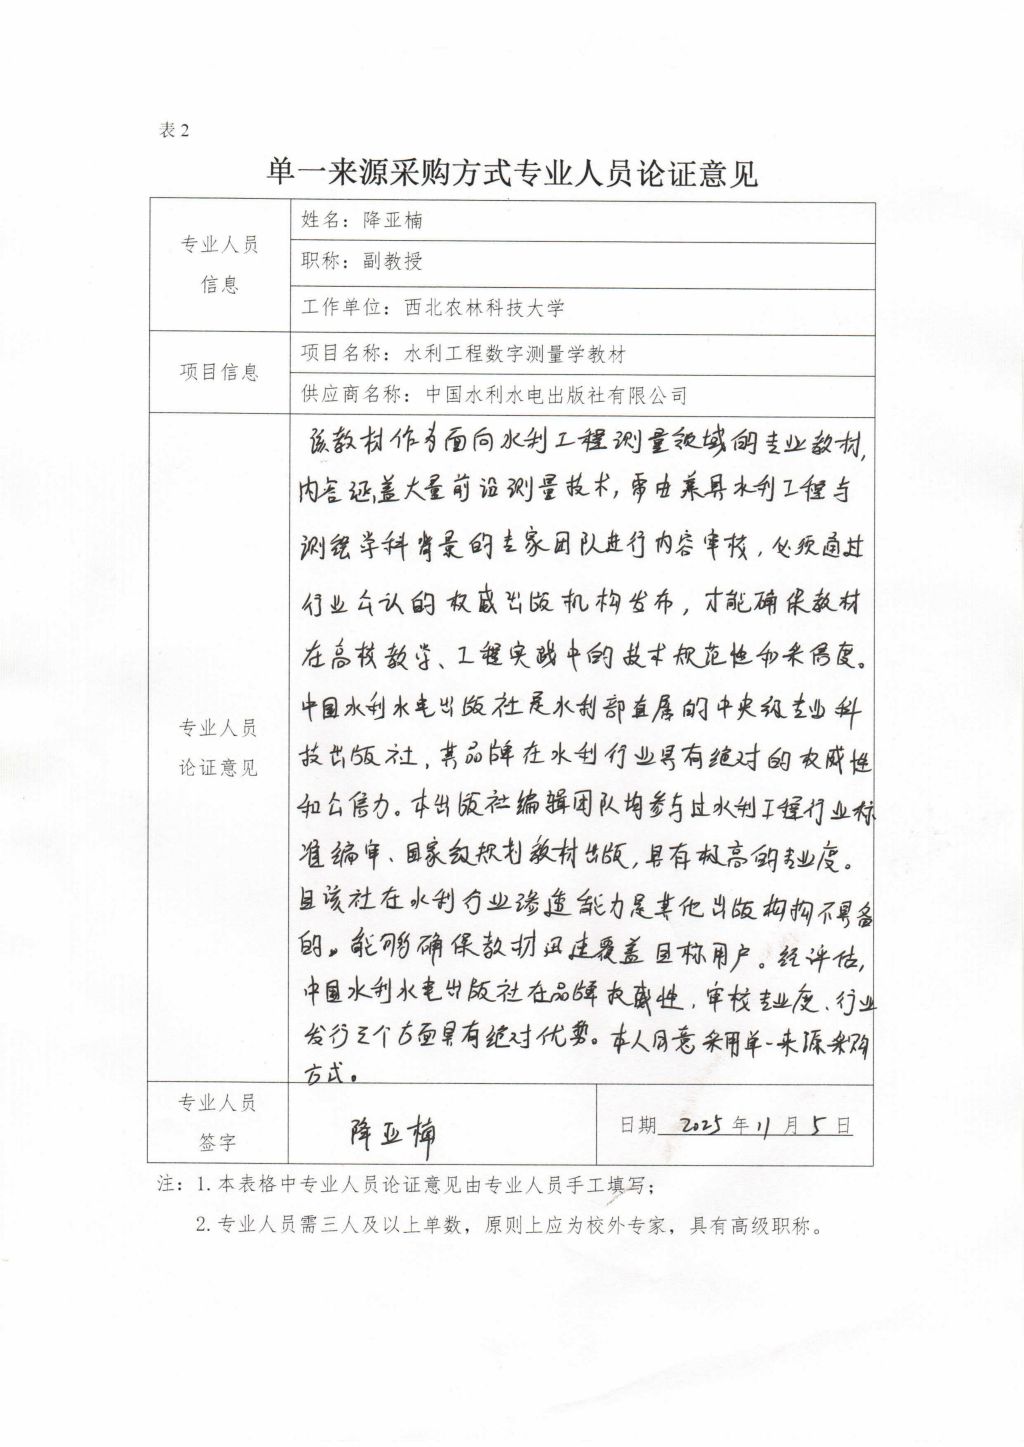 表2
单一来源采购方式专业人员论证意见
专业人员
信息
姓名：降亚楠
职称：副教授
工作单位：西北农林科技大学
项目信息
项目名称：水利工程数字测量学教材
供应商名称：中国水利水电出版社有限公司
专业人员
论证意见
该教材作为面向水利工程测量领域的专业教材，
内容涵盖大量前沿测量技术，需由兼具水利工程与
测绘学科背景的专家团队进行内容审核，必须通过
行业公认的权威出版机构发布，才能确保教材
在高校教学、工程实践中的技术规范性和采信度。
中国水利水电出版社是水利部直属的中央级专业科
技出版社，其品牌在水利行业具有绝对的权威性
和公信力。本出版社编辑团队均参与过水利工程行业标
准编审、国家级规划教材出版，具有极高的专业度。
且该社在水利行业渗透能力是其他出版机构不具备
的。能够确保教材迅速覆盖目标用户。经评估，
中国水利水电出版社在品牌权威性、审核专业度、行业
发行三个方面具有绝对优势。本人同意采用单一来源采购
方式。
专业人员
签字
降亚楠
日期 2025年11月5日
注：1.本表格中专业人员论证意见由专业人员手工填写；
2.专业人员需三人及以上单数，原则上应为校外专家，具有高级职称。